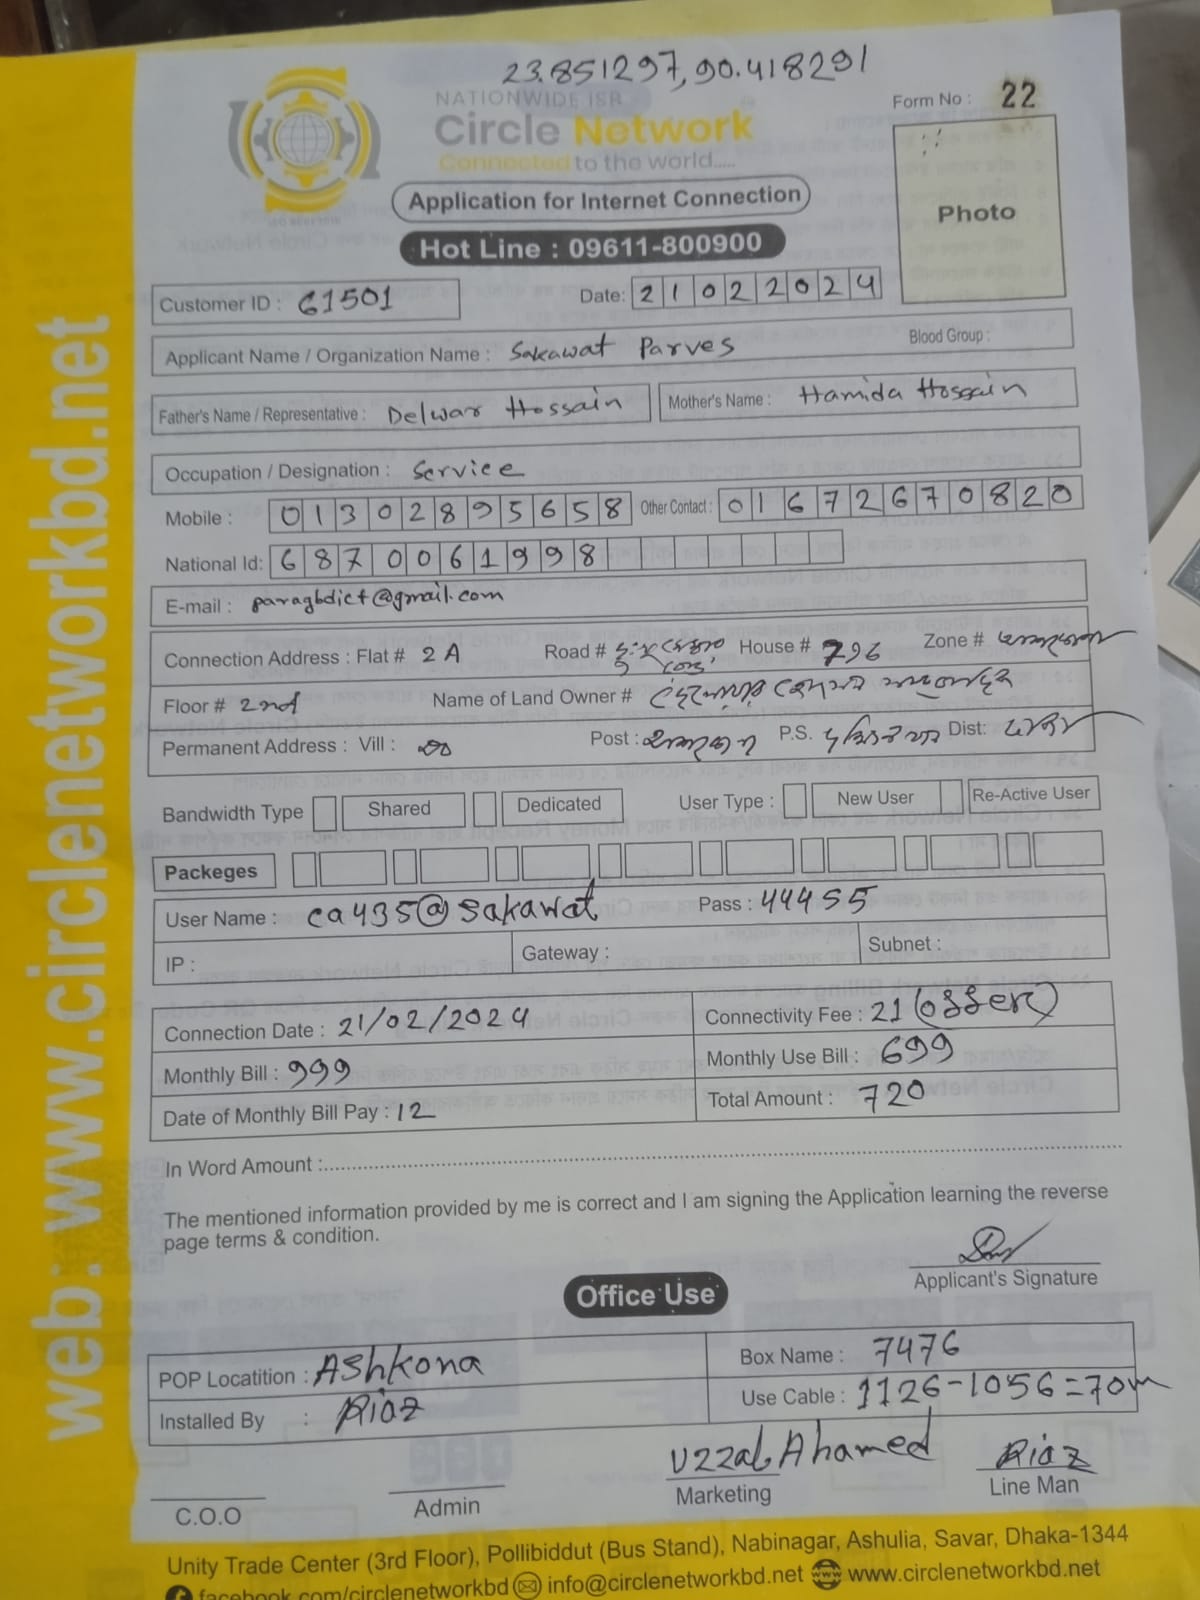 23.851297, 90.418291
NATIONWIDE ISP
Circle Network
Connected to the world.....
Form No : 22
Photo
Application for Internet Connection
Hot Line : 09611-800900
Customer ID : 61501
Date: 21022024
Applicant Name / Organization Name : Sakawat Parves
Blood Group :
Father's Name / Representative : Delwar Hossain
Mother's Name : Hamida Hossain
Occupation / Designation : Service
Mobile : 01302895658 Other Contact : 01672670820
National Id: 6870061998
E-mail : paragbdict@gmail.com
Connection Address : Flat # 2A Road # House # 796 Zone #
Floor # 2nd Name of Land Owner #
Permanent Address : Vill : Post : P.S. Dist:
Bandwidth Type Shared Dedicated User Type : New User Re-Active User
Packeges
User Name : ca435@sakawat Pass : 44455
IP : Gateway : Subnet :
Connection Date : 21/02/2024 Connectivity Fee : 21 (offer)
Monthly Bill : 999 Monthly Use Bill : 699
Date of Monthly Bill Pay : 12 Total Amount : 720
In Word Amount :
The mentioned information provided by me is correct and I am signing the Application learning the reverse
page terms & condition.
Applicant's Signature
Office Use
POP Locatition : Ashkona Box Name : 7476
Installed By : Riaz Use Cable : 1126-1056=70m
Uzzal Ahamed Riaz
C.O.O Admin Marketing Line Man
Unity Trade Center (3rd Floor), Pollibiddut (Bus Stand), Nabinagar, Ashulia, Savar, Dhaka-1344
facebook.com/circlenetworkbd info@circlenetworkbd.net www.circlenetworkbd.net
web: www.circlenetworkbd.net